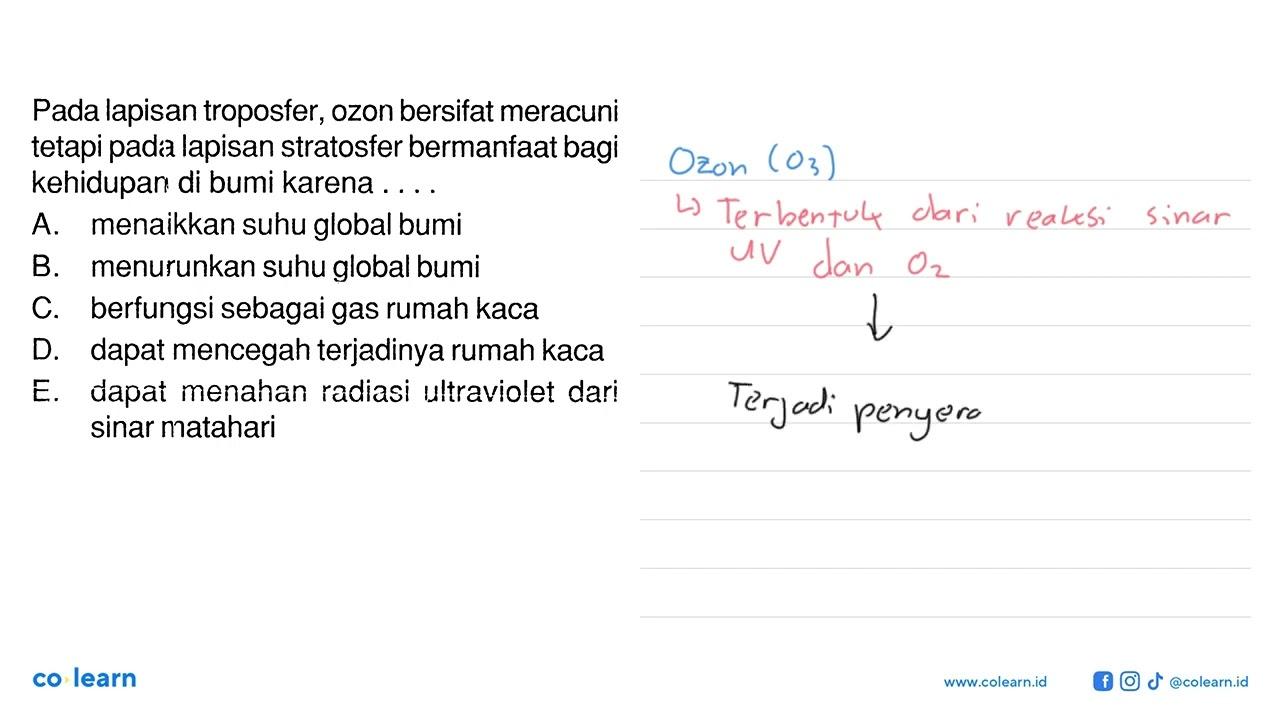 Pada lapisan troposfer, ozon bersifat meracuni
tetapi pada lapisan stratosfer bermanfaat bagi
kehidupan di bumi karena . . . .
A. menaikkan suhu global bumi
B. menurunkan suhu global bumi
C. berfungsi sebagai gas rumah kaca
D. dapat mencegah terjadinya rumah kaca
E. dapat menahan radiasi ultraviolet dari
sinar matahari
Ozon (O3)
↳ Terbentuk dari reaksi sinar
UV dan O2
↓
Terjadi penyera
co learn
www.colearn.id
@colearn.id